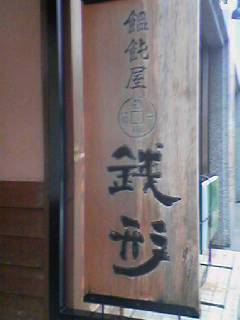 饂飩屋
銭形